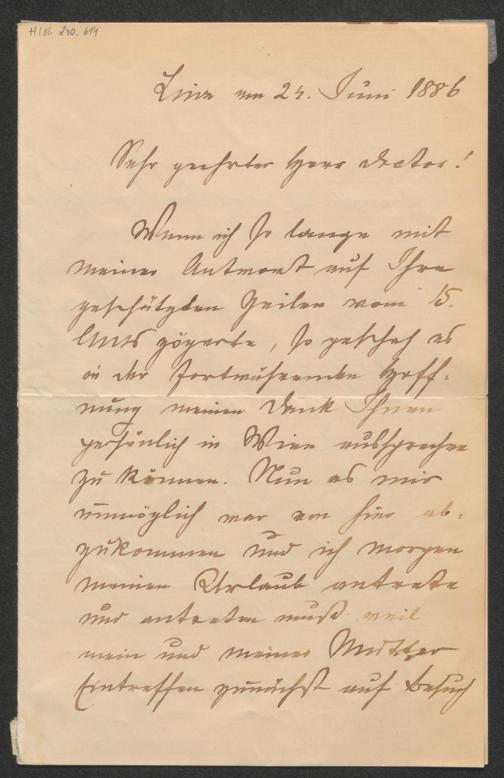 H.I.N. 240.614
Linz am 24. Juni 1886
Sehr geehrter Herr Doctor!
Wenn ich so lange mit
meiner Antwort auf Ihre
geschätzten Zeilen vom 15.
lMts zögerte, so geschah es
in der fortwährenden Hoff-
nung meinen Dank Ihnen
persönlich in Wien aussprechen
zu können. Nun es mir
unmöglich war von hier ab-
zukommen und ich morgen
meinen Urlaub antrete
und antreten muß weil
mein und meiner Mutter
Eintreffen zunächst auf Besuch